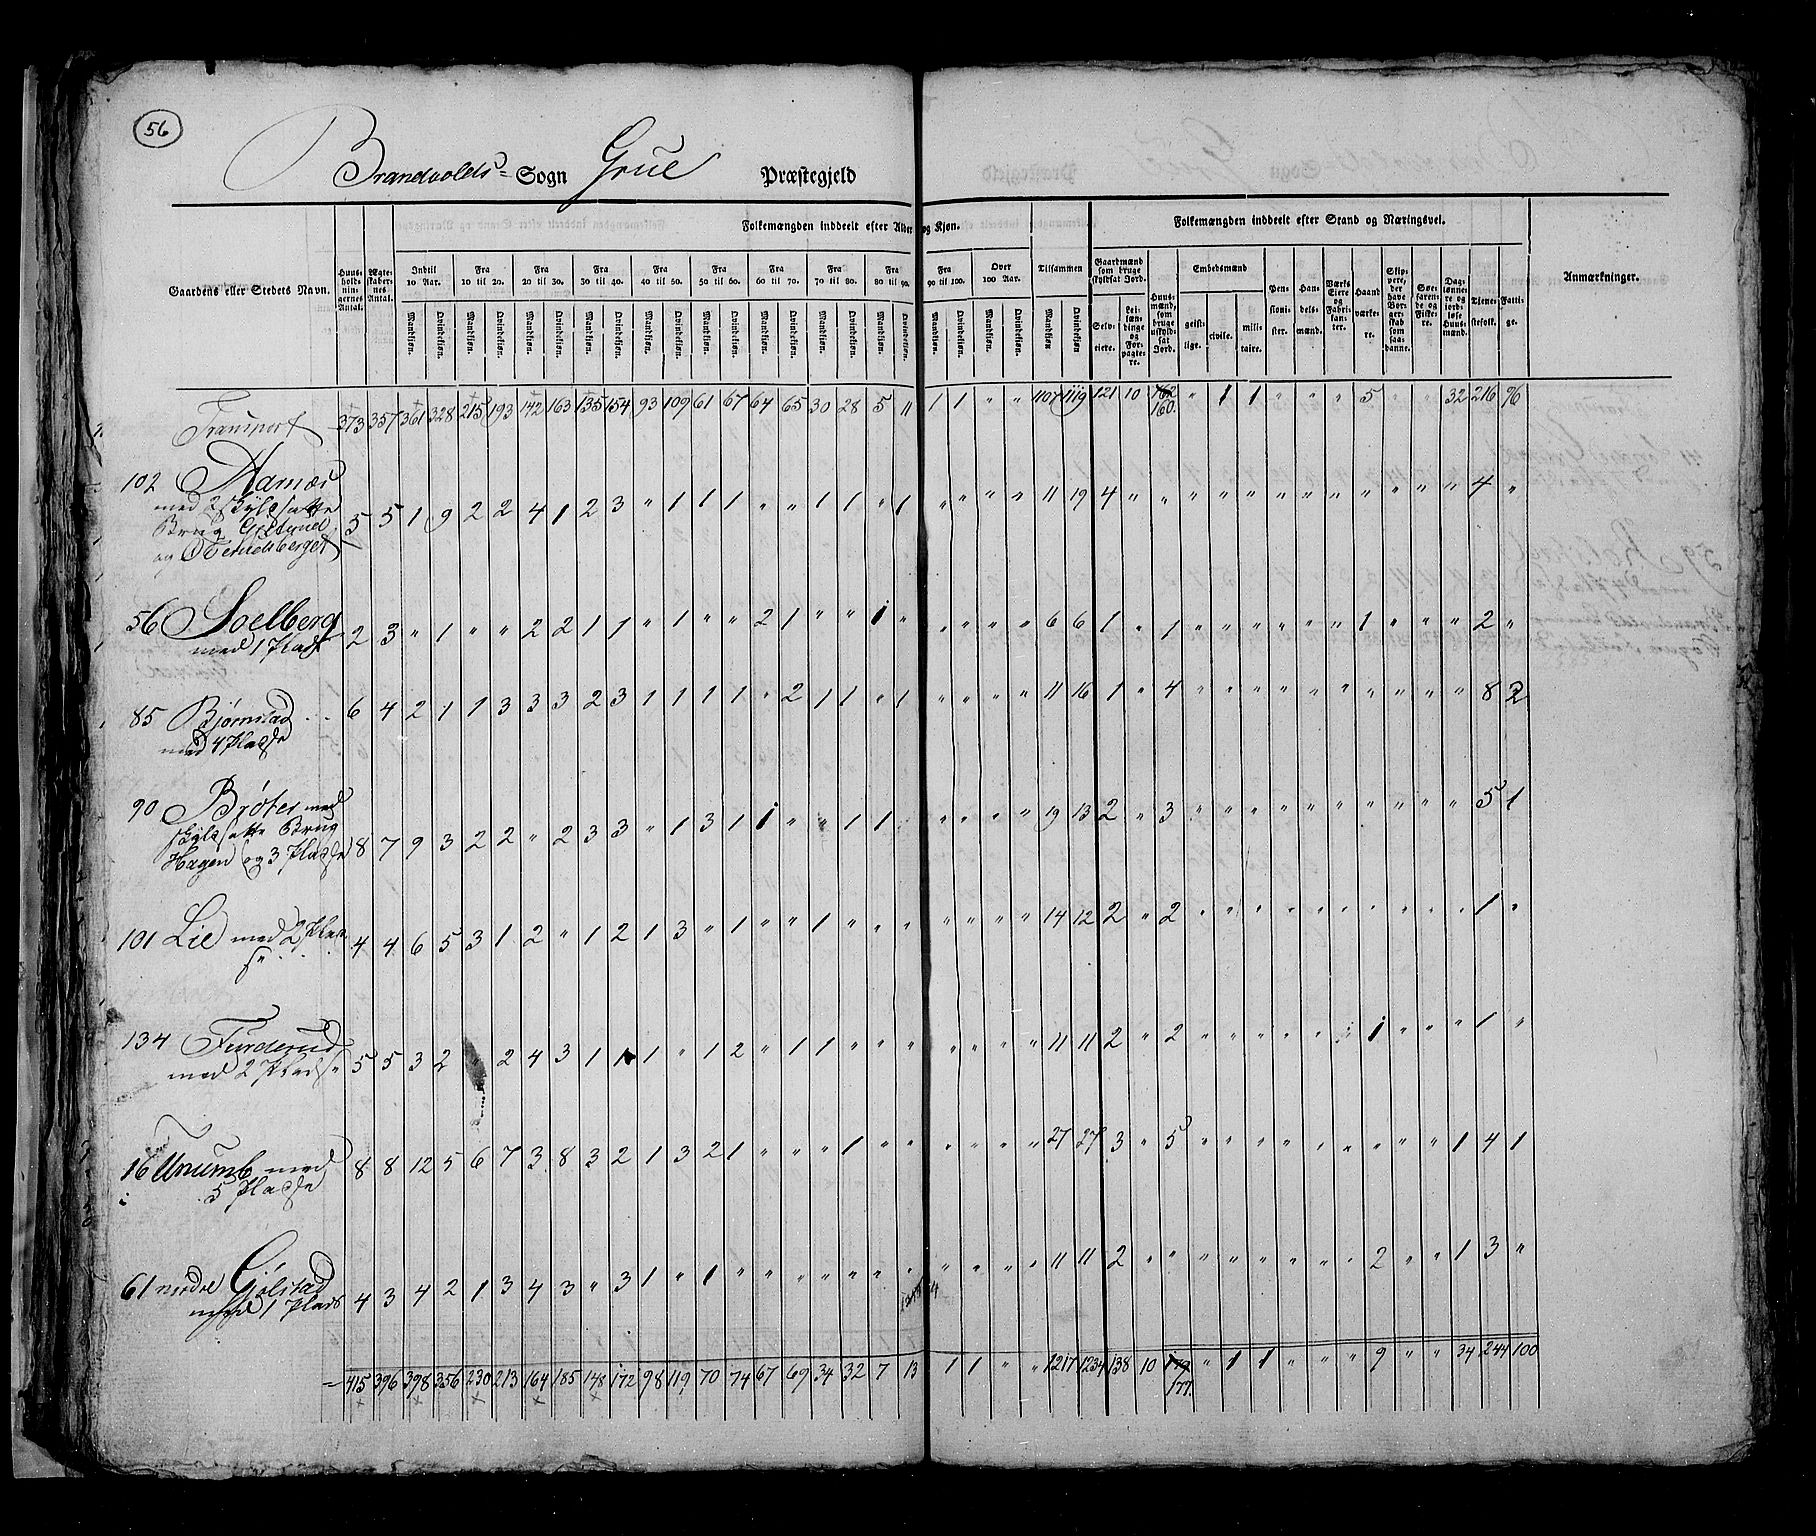 56
Brandvolds= Sogn Grue Præstegjeld
Folkemængden inddeelt efter Alder og Kjøn. Folkemængden inddeelt efter Stand og Næringsvei.
Gaardens eller Stedets Navn. Huusholdningernes Antal. Ægteskabernes Antal. Indtil 10 Aar. Fra 10 til 20. Fra 20 til 30. Fra 30 til 40. Fra 40 til 50. Fra 50 til 60. Fra 60 til 70. Fra 70 til 80. Fra 80 til 90. Fra 90 til 100. Over 100 Aar. Tilsammen Gaardmænd som bruge skyldsat Jord. Huusmænd, som bruge uskyldsat Jord. Embedsmænd Pensionister. Handelsmænd. Værks Eiere og Fabrikanter. Haandværkere. Skippere, der have Borgerskab som saadanne. Søefarende og Fiskere. Dagslønnere og jordløse Huusmænd. Tienestefolk. Fattige. Anmærkninger.
Mandkiøn. Qvindekiøn. Mandkiøn. Qvindekiøn. Mandkiøn. Qvindekiøn. Mandkiøn. Qvindekiøn. Mandkiøn. Qvindekiøn. Mandkiøn. Qvindekiøn. Mandkiøn. Qvindekiøn. Mandkiøn. Qvindekiøn. Mandkiøn. Qvindekiøn. Mandkiøn. Qvindekiøn. Mandkiøn. Qvindekiøn. Mandkiøn Qvindekiøn Selveiere. Leilændinge og Forpagtere. geistlige. civile. militaire.
Transport 373 357 361 328 215 193 142 163 135 154 93 109 61 67 64 65 30 28 5 11 1 1 " " 1107 1119 121 10 162 " 1 1 " " " 5 " " 32 216 96
160.
102 Aarnæs
med 2 skyldsatte
Brug Gjelterud
og Berudsberget 5 5 1 9 2 2 4 1 2 3 " 1 1 1 " " 1 1 " 1 " " " " 11 19 4 " " " " " " " " " " " " 4 "
56 Soelberg
med 1 Plads 2 3 " 1 " " 2 2 1 1 " 1 " " 2 1 " " 1 " " " " " 6 6 1 " 1 " " " " " " 1 " " " 2 "
85 Bjørnstad
med 4 Pladse 6 4 2 1 1 3 3 3 2 3 1 1 1 1 " 2 1 1 " 1 " " " " 11 16 1 " 4 " " " " " " " " " " 8 2
90 Brøter med
skyldsatte Brug
Hagen og 3 Pladse 8 7 9 3 2 2 " 2 3 3 " 1 3 1 1 " " 1 1 " " " " " 19 13 2 " 3 " " " " " " " " " " 5 1
101 Lie med 2 Plad-
se 4 4 6 5 3 1 2 " 1 2 1 3 " 1 " " 1 " " " " " " " 14 12 2 " 2 " " " " " " " " " " 1 "
134 Furderud
med 2 Pladse 5 5 3 2 " 2 4 3 1 1 1 " 1 2 " 1 1 " " " " " " " 11 11 2 " 2 " " " " " " 1 " " " 1 "
16 Urumb med
5 Pladse 8 8 12 5 6 7 3 8 3 2 1 3 2 1 " " " 1 " " " " " " 27 27 3 " 5 " " " " " " " " " 1 4 1
61 nedre Gjølstad
med 1 Plads 4 3 4 2 1 3 4 3 " 3 1 " 1 " " " " " " " " " " " 11 11 2 " " " " " " " " 2 " " 1 3 "
415 396 398 356 230 213 164 185 148 172 98 119 70 74 67 69 34 32 7 13 1 1 " " 1217 1234 138 10 179 " 1 1 " " " 9 " " 34 244 100
177.